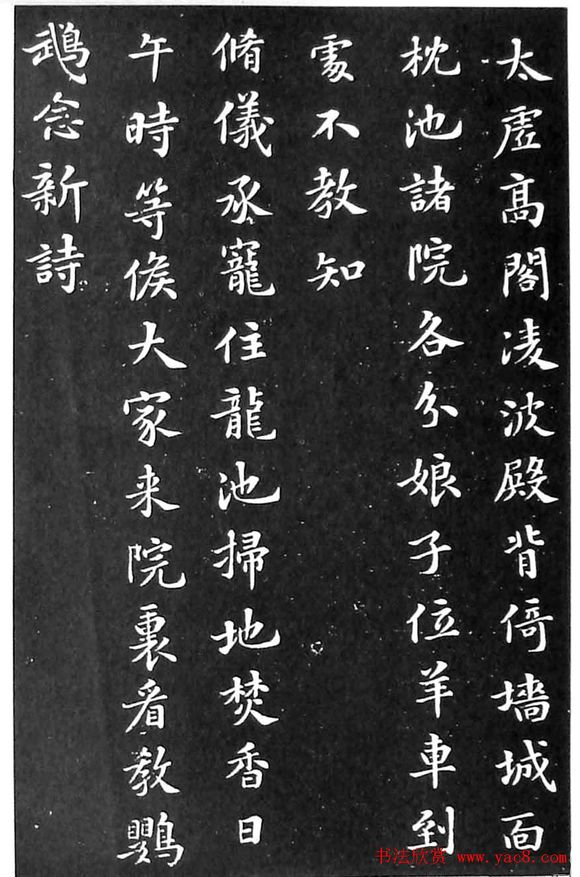 太虛高閣凌波殿背倚墻城面
枕池諸院各分娘子位羊車到
處不教知
脩儀承寵住龍池掃地焚香日
午時等候大家来院裏看教鸚
鵡念新詩
书法欣赏 www.yac8.com